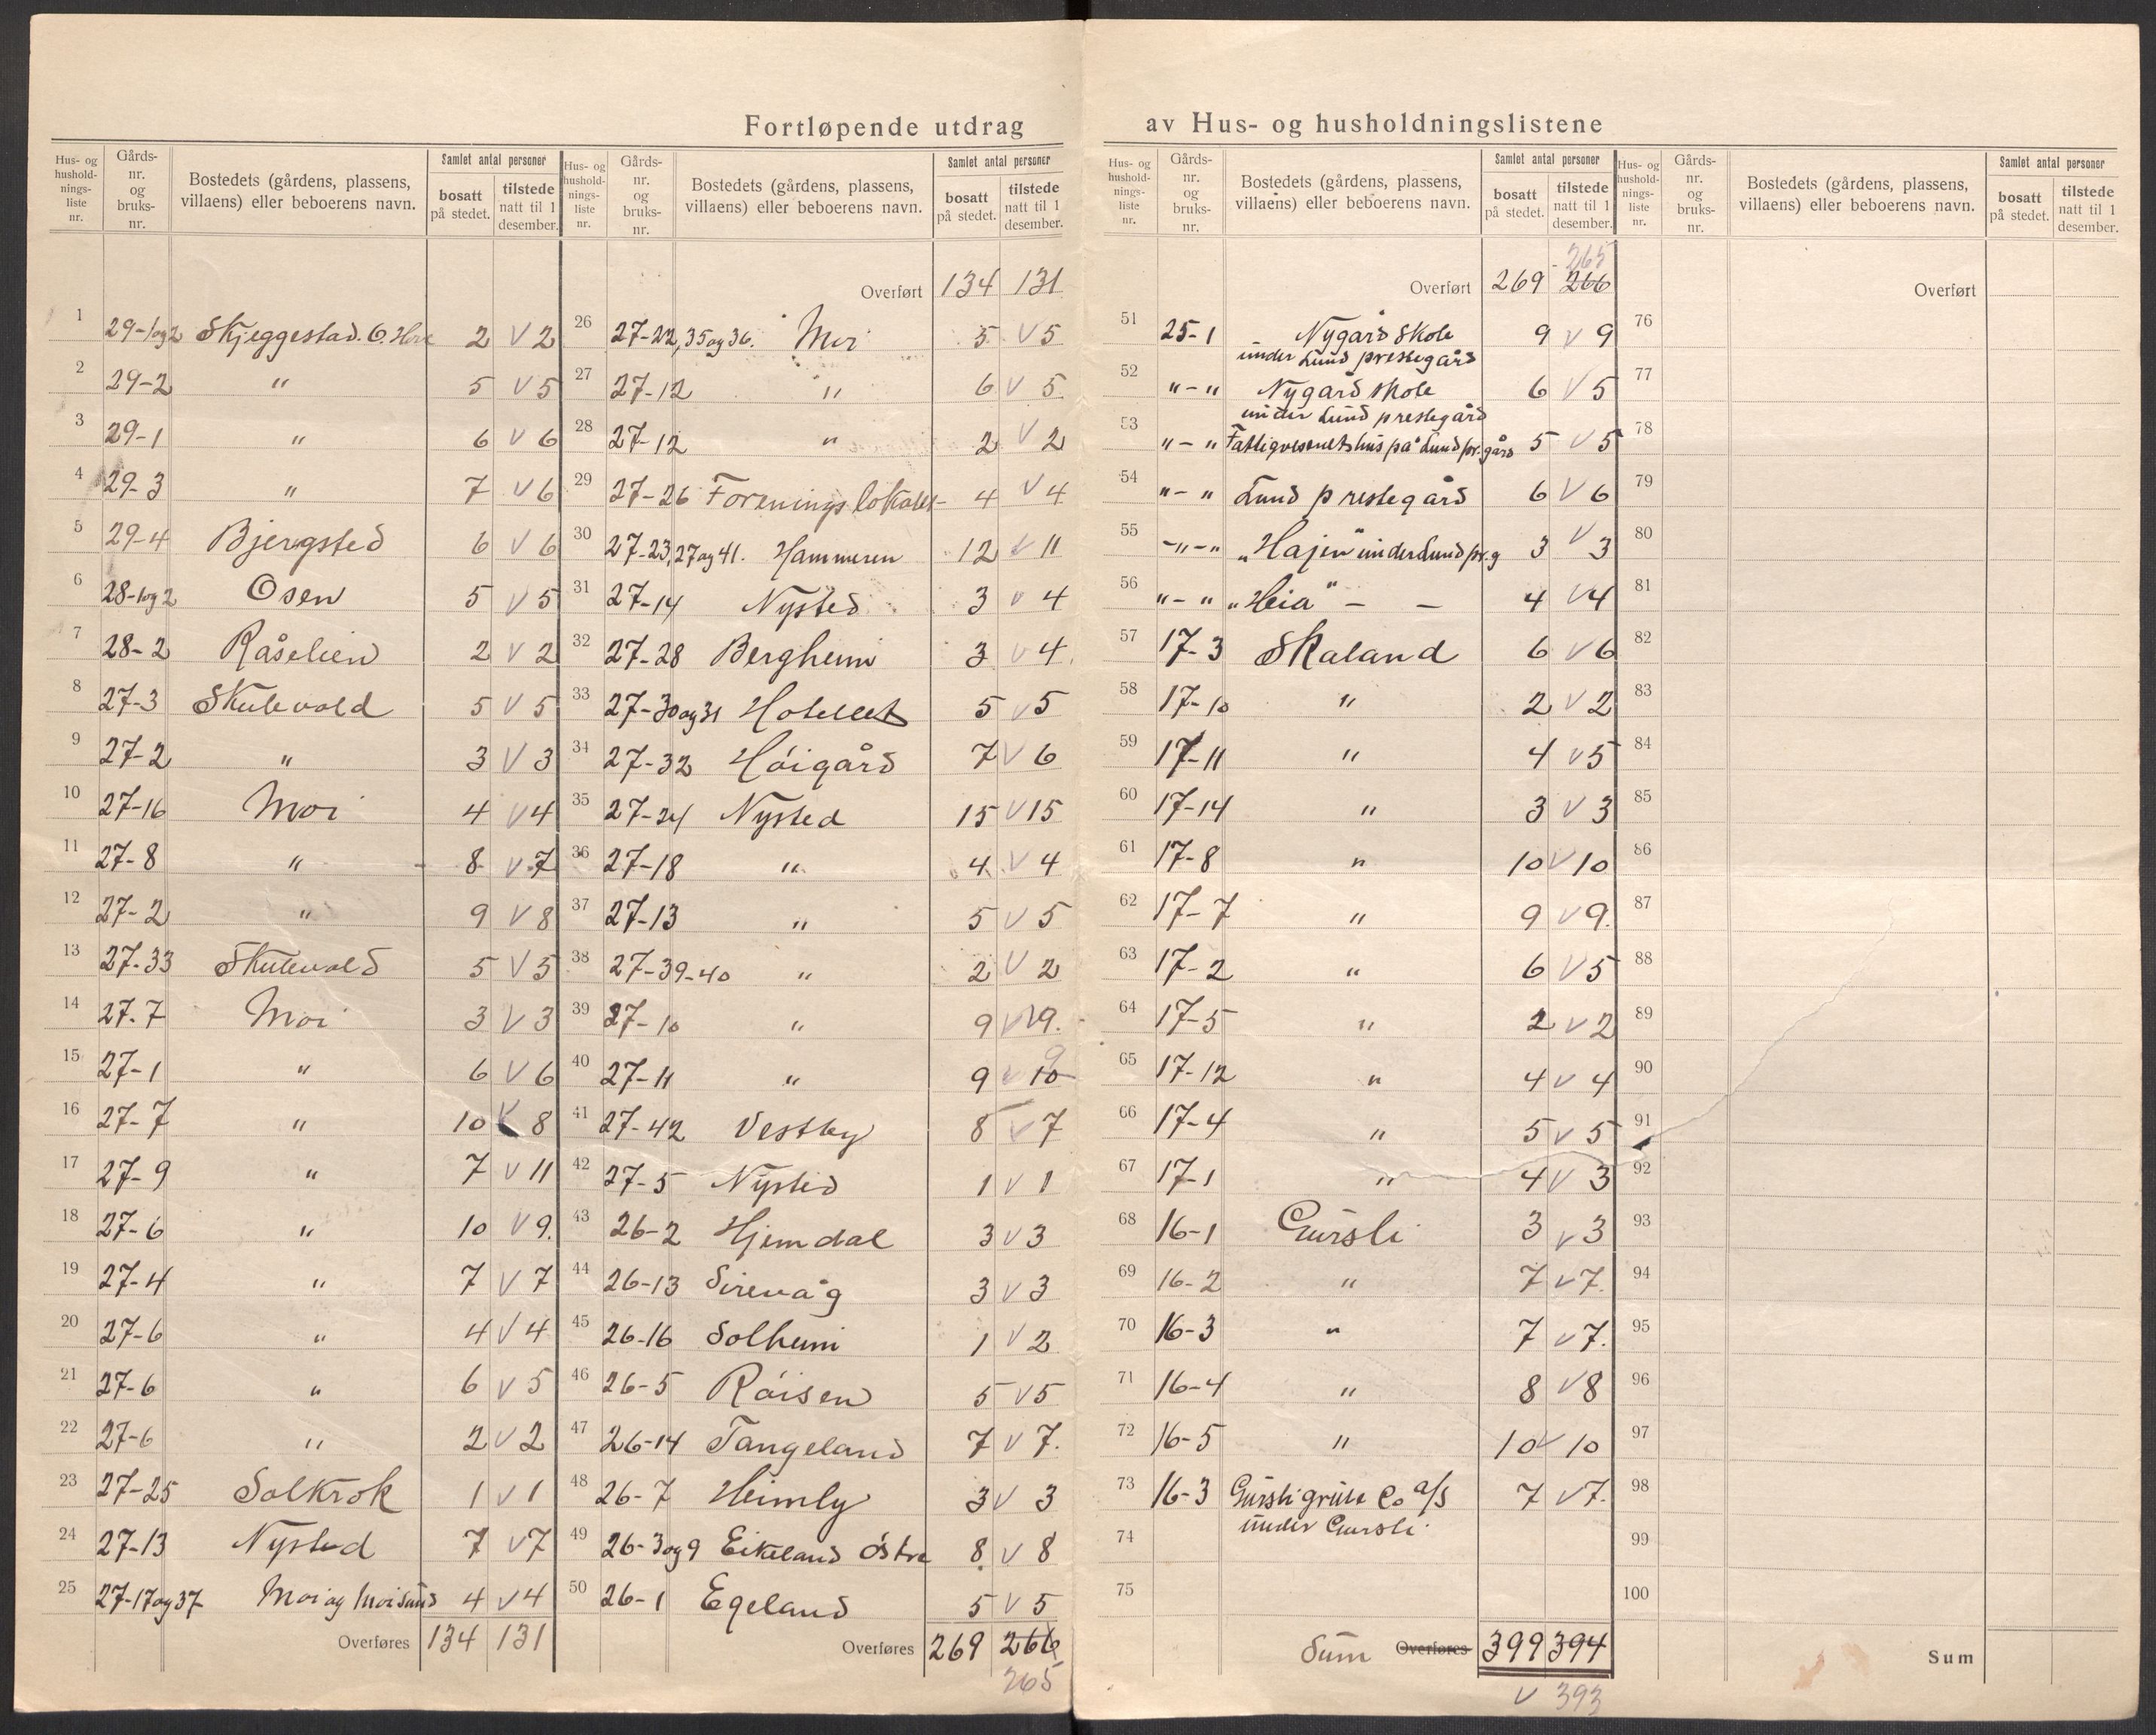 Fortløpende utdrag av Hus- og husholdningslistene
Hus- og husholdningsliste nr. | Gårds- nr. og bruks- nr. | Bostedets (gårdens, plassens, villaens) eller beboerens navn. | Samlet antal personer bosatt på stedet. | tilstede natt til 1 desember.
1 29-1og2 Skjeggestad. 2 V 2
2 29-2 " 5 V 5
3 29-1 " 6 V 6
4 29-3 " 7 V 6
5 29-4 Bjergsted 6 V 6
6 28-1og2 Osen 5 V 5
7 28-2 Råselien 2 V 2
8 27-3 Skulevold 5 V 5
9 27-2 " 3 V 3
10 27-16 Moi 4 V 4
11 27-8 " 8 V 7
12 27-2 " 9 V 8
13 27-33 Skulevold 5 V 5
14 27-7 Moi 3 V 3
15 27-1 " 6 V 6
16 27-7 " 10 V 8
17 27-9 " 7 V 11
18 27-6 " 10 V 9.
19 27-4 " 7 V 7
20 27-6 " 4 V 4
21 27-6 " 6 V 5
22 27-6 " 2 V 2
23 27-25 Solkrok 1 V 1
24 27-13 Nysted 7 V 7
25 27-17og37 Moi og Moisund 4 V 4
Overføres 134 131
Hus- og husholdningsliste nr. | Gårds- nr. og bruks- nr. | Bostedets (gårdens, plassens, villaens) eller beboerens navn. | Samlet antal personer bosatt på stedet. | tilstede natt til 1 desember.
Overført 134 131
26 27-22,35og36. Moi 5 V 5
27 27-12 " 6 V 5
28 27-12 " 2 V 2
29 27-26 Foreningslokalet 4 V 4
30 27-23,27og41. Hammeren 12 V 11
31 27-14 Nysted 3 V 4
32 27-28 Bergheim 3 V 4
33 27-30og31 Hotellet 5 V 5
34 27-32 Høigård 7 V 6
35 27-24 Nysted 15 V 15
36 27-18 " 4 V 4
37 27-13 " 5 V 5
38 27-39-40 " 2 V 2
39 27-10 " 9 V 9.
40 27-11 " 9 V 10 9
41 27-42 Vestby 8 V 7
42 27-5 Nysted 1 V 1
43 26-2 Hjemdal 3 V 3
44 26-13 Sirevåg 3 V 3
45 26-16 Solheim 1 V 2
46 26-5 Røisen 5 V 5
47 26-14 Tangeland 7 V 7.
48 26-7 Heimly 3 V 3
49 26-3og9 Eikeland østre 8 V 8
50 26-1 Egeland 5 V 5
Overføres 269 266
265
Hus- og husholdningsliste nr. | Gårds- nr. og bruks- nr. | Bostedets (gårdens, plassens, villaens) eller beboerens navn. | Samlet antal personer bosatt på stedet. | tilstede natt til 1 desember.
265
Overført 269 266
51 25-1 Nygård skole 9 V 9
under Lund prestegård
52 "-" Nygård skole 6 V 5
under Lund prestegård
53 "-" Fattigvesenets hus på Lund pr.gård 5 V 5
54 "-" Lund prestegård 6 V 6
55 -"-" "Hajen" under Lund pr.g 3 V 3
56 "-" "Heia" - - 4 V 4
57 17-3 Skaland 6 V 6
58 17-10 " 2 V 2
59 17-11 " 4 V 5
60 17-14 " 3 V 3
61 17-8 " 10 V 10
62 17-7 " 9 V 9.
63 17-2 " 6 V 5
64 17-5 " 2 V 2
65 17-12 " 4 V 4
66 17-4 " 5 V 5
67 17-1 " 4 V 3
68 16-1 Gursli 3 V 3
69 16-2 " 7 V 7.
70 16-3 " 7 V 7.
71 16-4 " 8 V 8
72 16-5 " 10 V 10
73 16-3 Gursli grube Co a/s 7 V 7.
under Gursli.
74
75
Sum Overføres 399 394
V 393
Hus- og husholdningsliste nr. | Gårds- nr. og bruks- nr. | Bostedets (gårdens, plassens, villaens) eller beboerens navn. | Samlet antal personer bosatt på stedet. | tilstede natt til 1 desember.
Overført
76
77
78
79
80
81
82
83
84
85
86
87
88
89
90
91
92
93
94
95
96
97
98
99
100
Sum